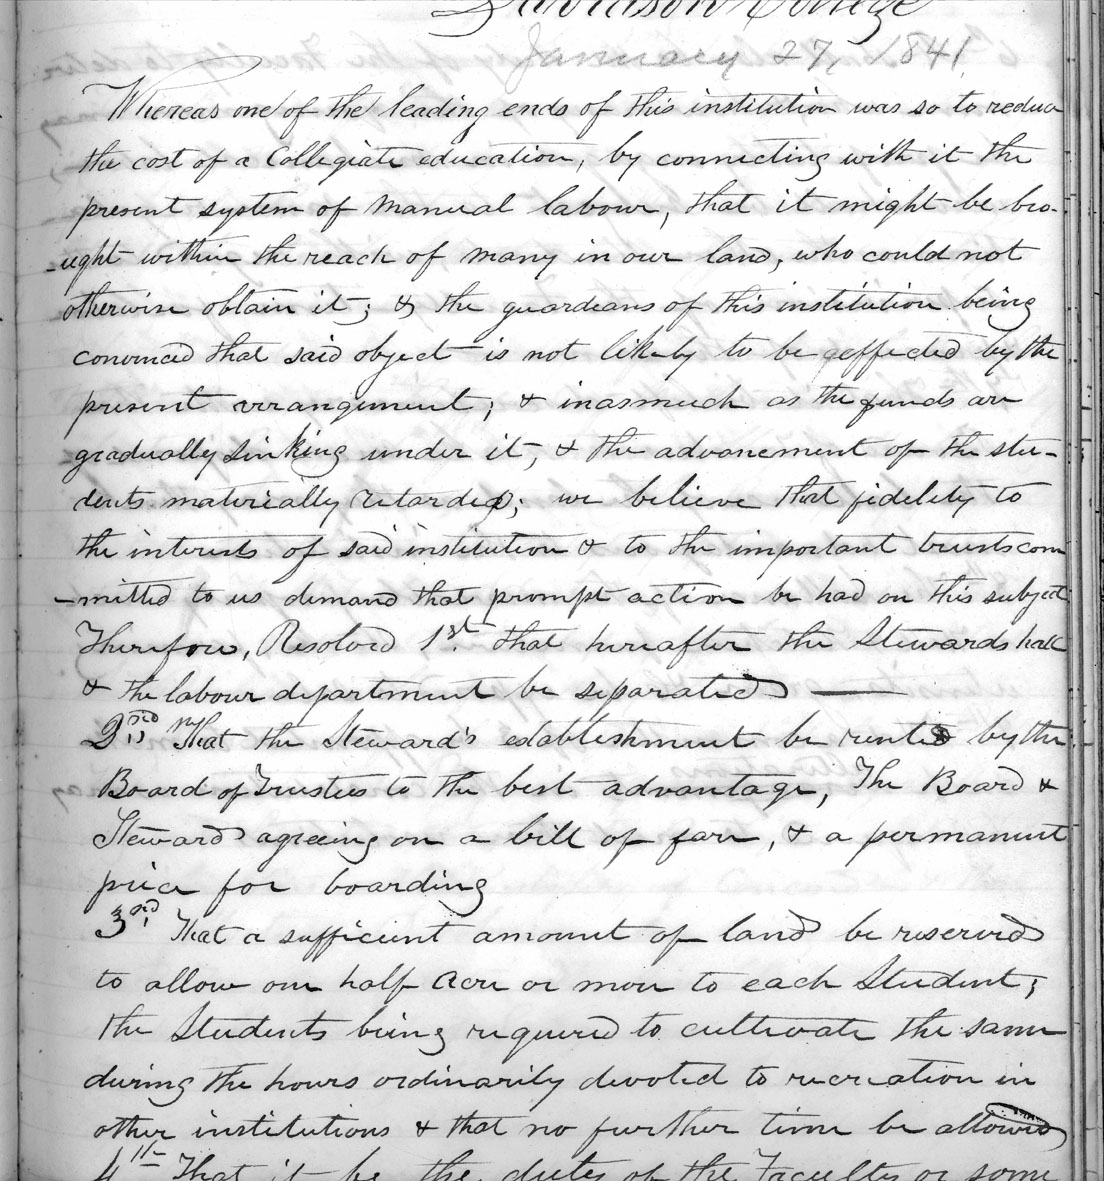 Davidson College
January 27, 1841
Whereas one of the leading ends of this institution was so to reduce
the cost of a Collegiate education, by connecting with it the
present system of manual labour, that it might be bro-
-ught within the reach of many in our land, who could not
otherwise obtain it; & the guardians of this institution being
convinced that said object is not likely to be effected by the
present arrangement; & inasmuch as the funds are
gradually sinking under it, & the advancement of the stu-
dents materially retarded; we believe that fidelity to
the interests of said institution & to the important trusts com
-mitted to us demand that prompt action be had on this subject
Therefore, Resolved 1st. That hereafter the Stewards hall
& the labour department be separated —
2nd That the Steward's establishment be rented by the
Board of Trustees to the best advantage, The Board &
Steward agreeing on a bill of fare, & a permanent
price for boarding
3rd That a sufficient amount of land be reserved
to allow one half acre or more to each Student;
the Students being required to cultivate the same
during the hours ordinarily devoted to recreation in
other institutions & that no further time be allowed
4th That it be the duty of the Faculty or some